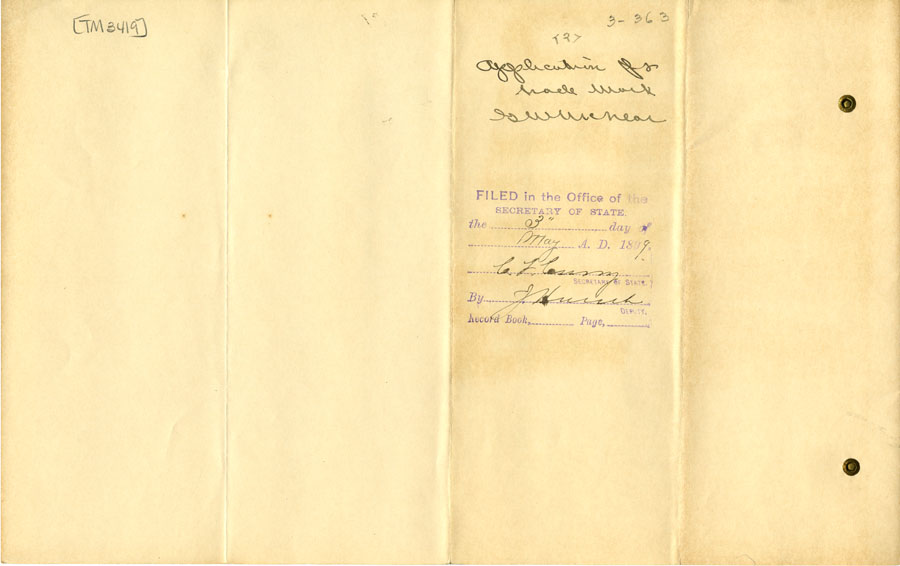 [TM 3419]
3-363
<2>
Application for
trade mark
G W McNear
FILED in the Office of the
SECRETARY OF STATE.
the 3" day of
May A. D. 1899.
C F Curry
SECRETARY OF STATE.
By J Hoesch
DEPUTY.
Record Book, Page,